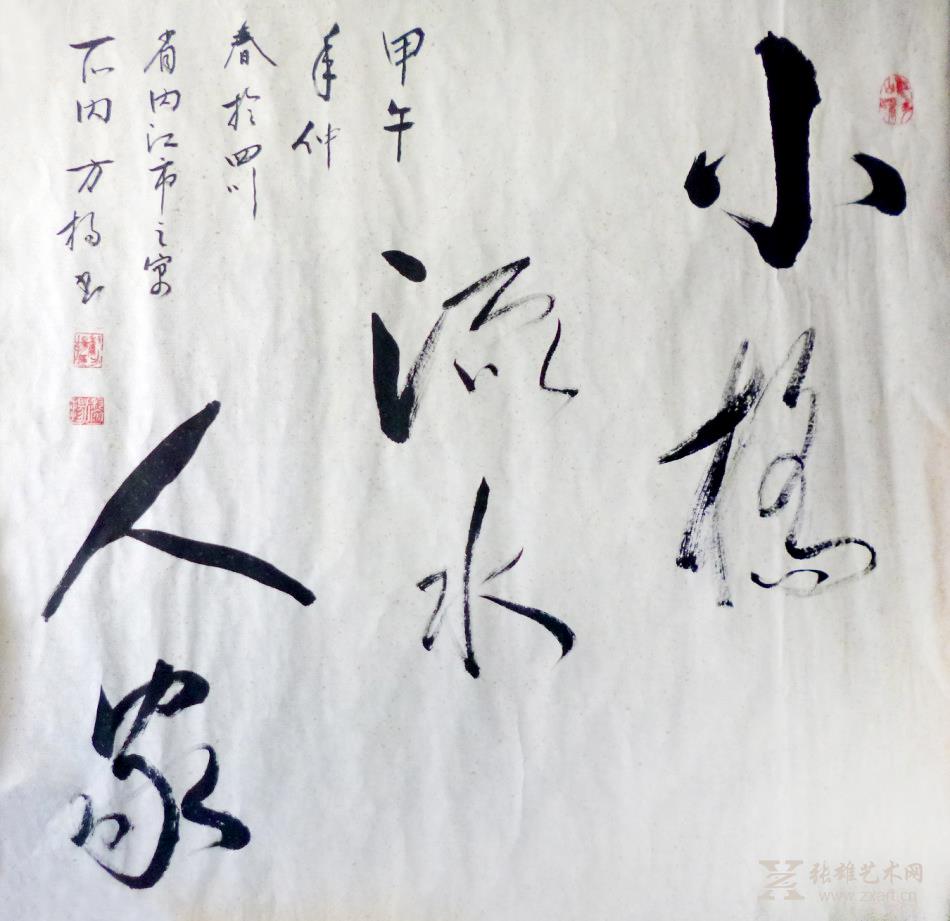 小橋
流水
人家
甲午
年仲
春於四川
省内江市之
内方楊書
张雄艺术网
www.zxart.cn